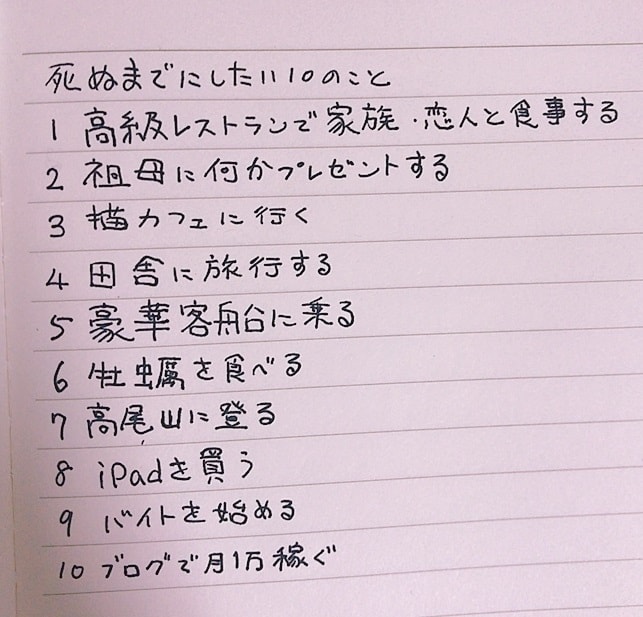 死ぬまでにしたい10のこと
1 高級レストランで家族・恋人と食事する
2 祖母に何かプレゼントする
3 猫カフェに行く
4 田舎に旅行する
5 豪華客船に乗る
6 牡蠣を食べる
7 高尾山に登る
8 iPadを買う
9 バイトを始める
10 ブログで月1万稼ぐ